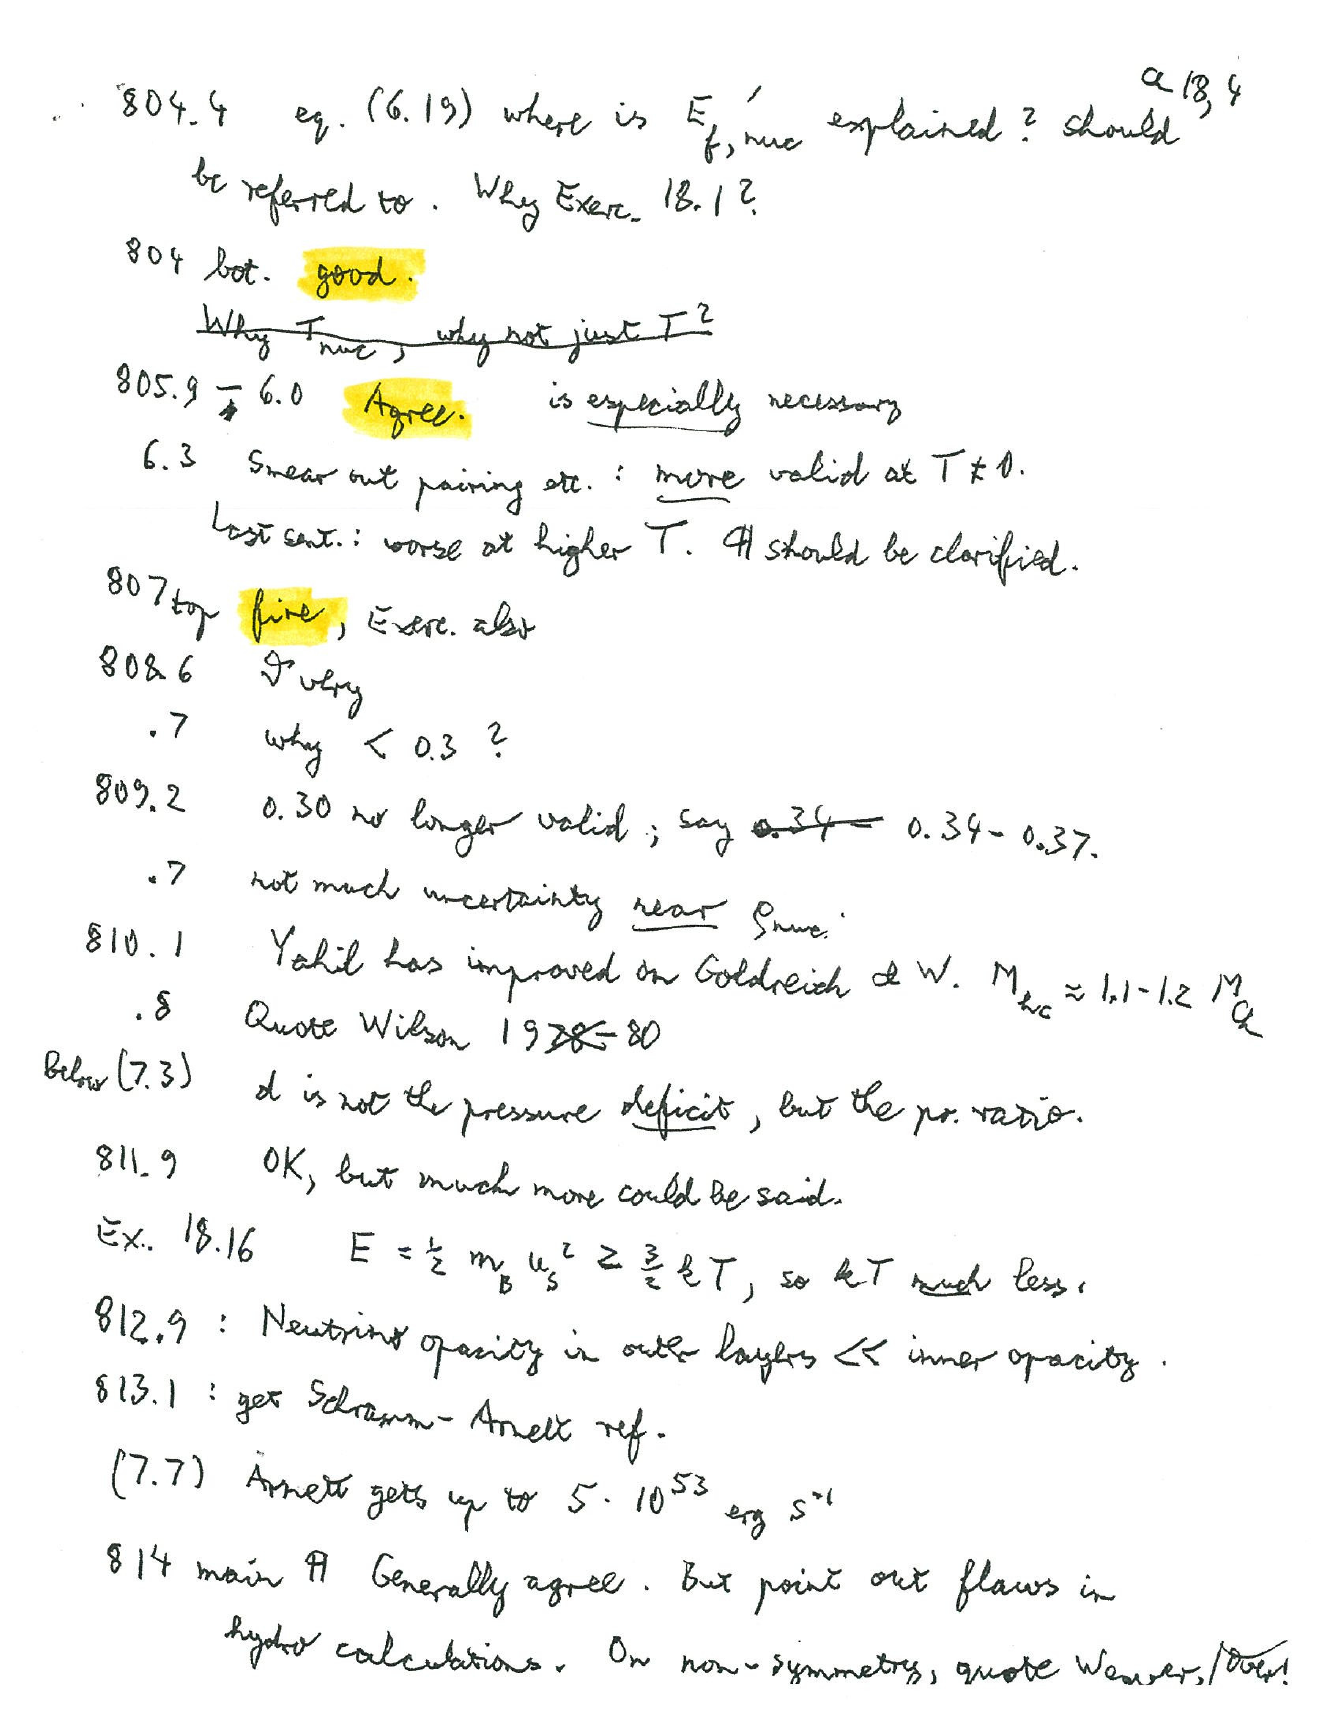 a 18,4
804.4 eq. (6.19) where is E'f,nuc explained? should
be referred to. Why Exerc. 18.1?
804 bot. good.
Why Tnuc, why not just T?
805.9 - 6.0 Agree. is especially necessary
6.3 Smear out pairing etc.: more valid at T ≠ 0.
Last sent.: worse at higher T. ¶ should be clarified.
807 top fine, Exerc. also
808.6 very
.7 why < 0.3 ?
809.2 0.30 no longer valid; say 0.34- 0.34-0.37.
.7 not much uncertainty near ρnuc.
810.1 Yahil has improved on Goldreich & W. Mhc ≈ 1.1-1.2 MCh
.8 Quote Wilson 1978-80
Below (7.3) d is not the pressure deficit, but the pr. ratio.
811.9 OK, but much more could be said.
Ex. 18.16 E = ½ mB us² ≥ 3/2 kT, so kT much less.
812.9 : Neutrino opacity in outer layers << inner opacity.
813.1 : get Schramm-Arnett ref.
(7.7) Arnett gets up to 5·10⁵³ erg s⁻¹
814 main ¶ Generally agree. But point out flaws in
hydro calculations. On non-symmetry, quote Weaver, /Over!